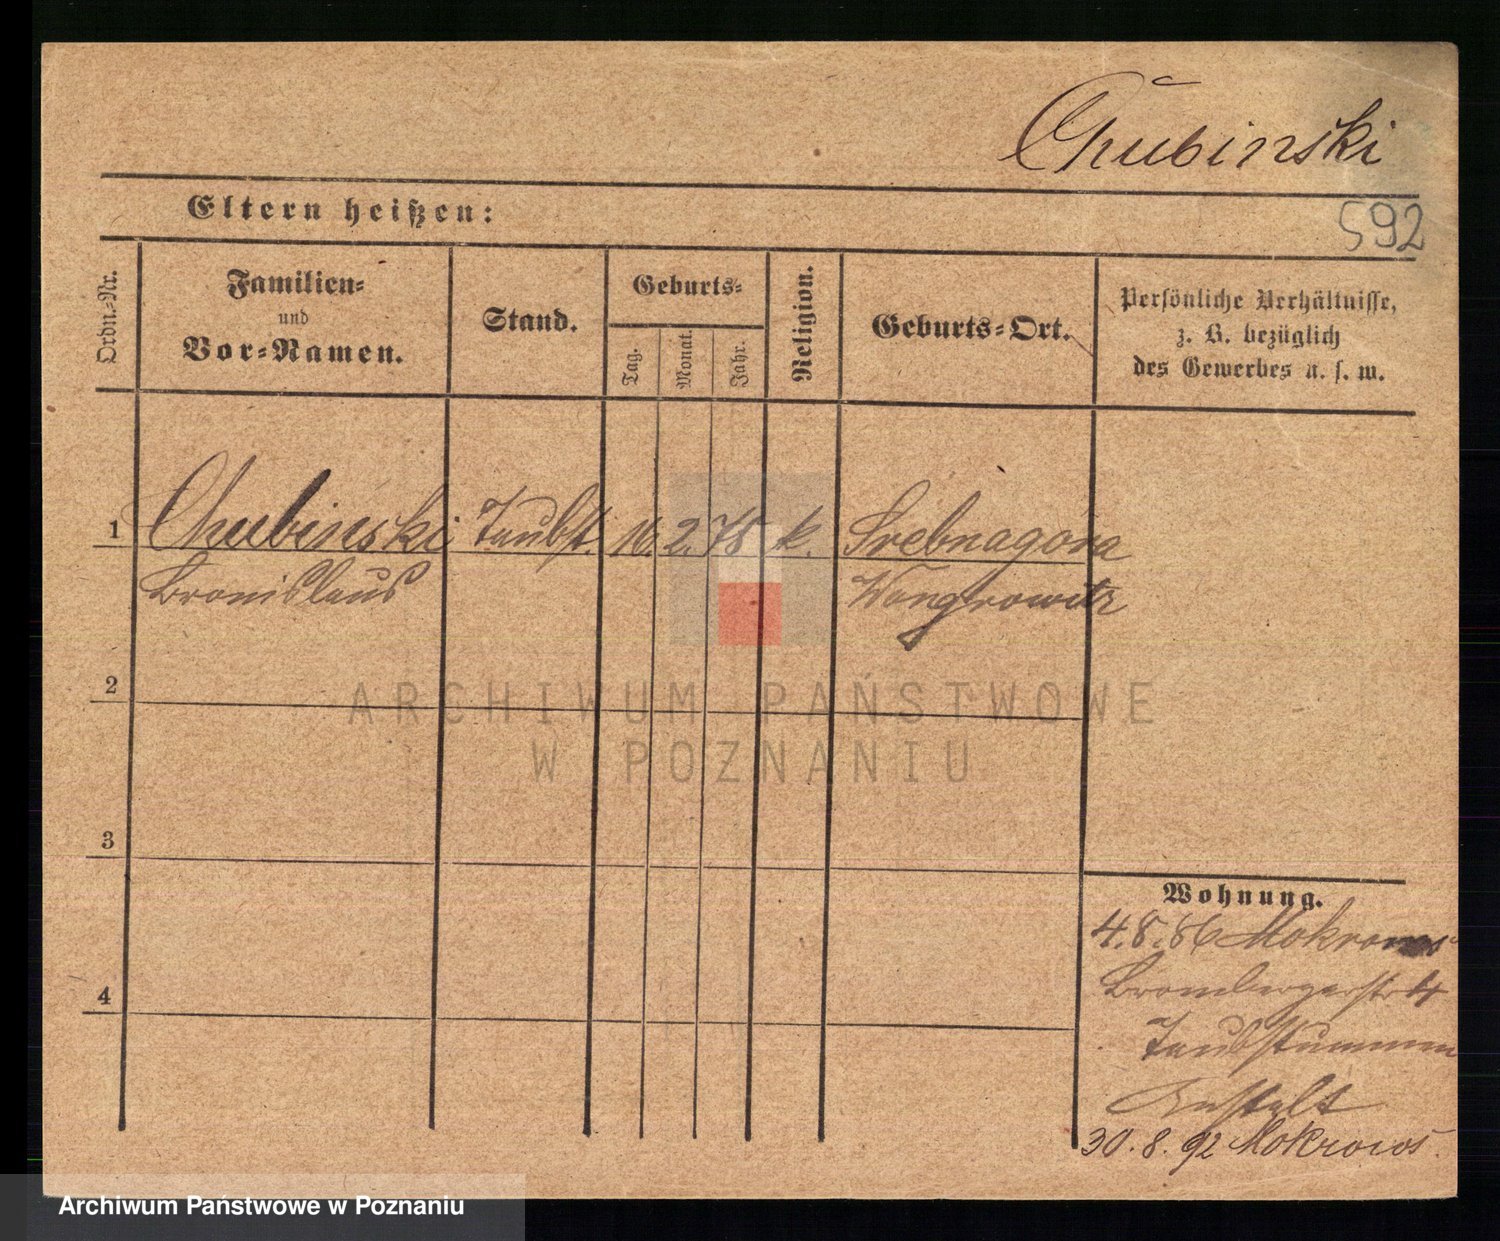 Chubinski
592
Eltern heißen:
Ordn.-Nr.
Familien-
und
Vor-Namen.
Stand.
Geburts-
Tag.
Monat.
Jahr.
Religion.
Geburts-Ort.
Persönliche Verhältnisse,
z. B. bezüglich
des Gewerbes u. s. w.
1 Chubinski Taubst. 10. 2. 75 k. Srebnagora
Bronislaus Wongrowitz
2
3
4
Wohnung.
4.8.86 Mokronos
Brombergerstr. 4
Taubstummen
Anstalt
30.8.92 Mokronos.
ARCHIWUM PAŃSTWOWE
W POZNANIU
Archiwum Państwowe w Poznaniu